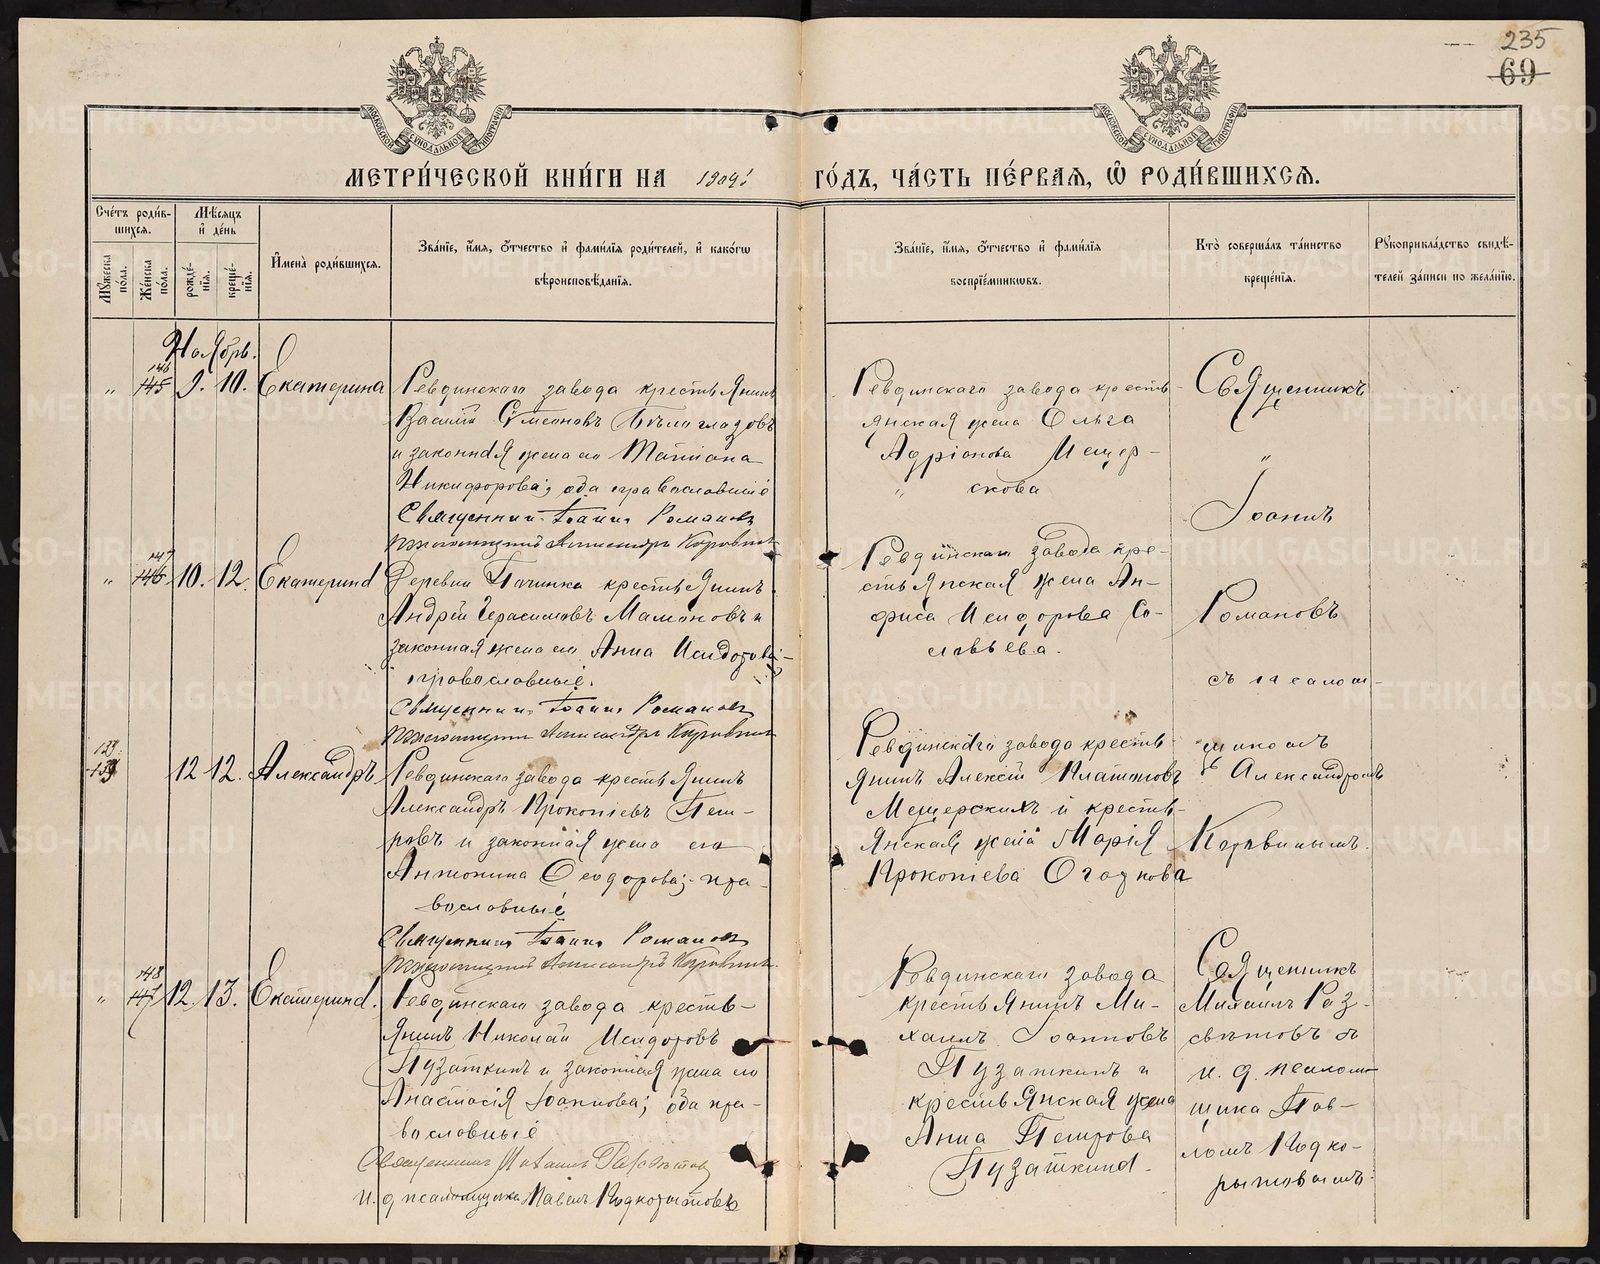 235
69
МЕТРИ́ЧЕСКОЙ КНИ́ГИ НА 1909 ГО́ДЪ, ЧА́СТЬ ПЕ́РВАѦ, Ѡ РОДИ́ВШИХСѦ.
Сче́тъ роди́вшихсѧ.
Мꙋжеска по́ла.
Же́нска по́ла.
Мѣ́сѧцъ и҆ де́нь
рожде́нїѧ.
креще́нїѧ.
И҆мена̀ роди́вшихсѧ.
Зва́нїе, и҆́мѧ, ѻ҆́тчество и҆ фами́лїѧ роди́телей, и҆ како́гѡ
вѣроисповѣ́данїѧ.
Зва́нїе, и҆́мѧ, ѻ҆́тчество и҆ фами́лїѧ
воспрїе́мниковъ.
Кто̀ соверша́лъ та́инство
креще́нїѧ.
Рꙋкоприкла́дство свидѣ́-
телей за́писи по жела́нїю.
Ноябрь.
" 146 145 9. 10. Екатерина
Ревдинскаго завода крестьянинъ
Василій Сѵмеоновъ Бѣлоглазовъ
и законная жена его Татіана
Никифорова; оба православные
Священникъ Іоаннъ Романовъ
Псаломщикъ Александръ Коровинъ
Ревдинскаго завода кресть-
янская жена Ольга
Адріанова Мещер-
" скова
Священникъ
"
Іоаннъ
" 147 146 10. 12. Екатерина
Деревни Починка крестьянинъ
Андрей Герасимовъ Мамоновъ и
законная жена его Анна Исидорова;
православные.
Священникъ Іоаннъ Романовъ
Псаломщикъ Александръ Коровинъ
Ревдинскаго завода кре-
стьянская жена Ан-
фиса Исидорова Со-
ловьева.
Романовъ
съ псалом-
139 12 12. Александръ
Ревдинскаго завода крестьянинъ
Александръ Прокопіевъ Пет-
ровъ и законная жена его
Антонина Ѳеодорова; пра-
вославные
Священникъ Іоаннъ Романовъ
Псаломщикъ Александръ Коровинъ.
Ревдинскаго завода кресть-
янинъ Алексій Платоновъ
Мещерскихъ и кресть-
янская жена Марія
Прокопіева
щикомъ
Александромъ
Коровинымъ.
" 148 147 12. 13. Екатерина.
Ревдинскаго завода кресть-
янинъ Николай Исидоровъ
Пузаткинъ и законная жена его
Анастасія Іоаннова; оба пра-
вославные
Священникъ Михаилъ Разсвѣтовъ
и. д. псаломщика Павелъ Подкорытовъ
Ревдинскаго завода
крестьянинъ Ми-
хаилъ Іоанновъ
Пузаткинъ и
крестьянская жена
Анна Петрова
Пузаткина.
Священникъ
Михаилъ Раз-
свѣтовъ съ
и. д. псалом-
щика Пав-
ломъ Подко-
рытовымъ.